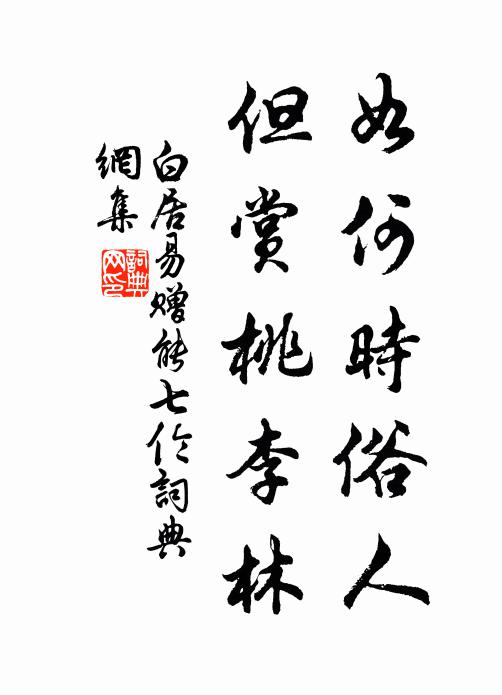 如何時俗人
但賞桃李林
白居易贈能七伦詞典
網集
詞典網印